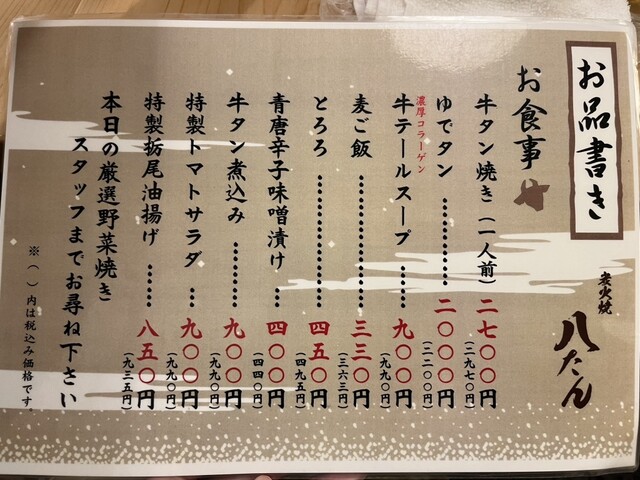 お品書き
炭火焼
八たん
お食事
牛タン焼き(一人前)二七〇〇円
(二九七〇円)
ゆでタン……………二〇〇〇円
(二二〇〇円)
濃厚コラーゲン
牛テールスープ……九〇〇円
(九九〇円)
麦ご飯………………三三〇円
(三六三円)
とろろ………………四五〇円
(四九五円)
青唐辛子味噌漬け…四〇〇円
(四四〇円)
牛タン煮込み………九〇〇円
(九九〇円)
特製トマトサラダ…九〇〇円
(九九〇円)
特製栃尾油揚げ……八五〇円
(九三五円)
本日の厳選野菜焼き
スタッフまでお尋ね下さい
※( )内は税込み価格です。